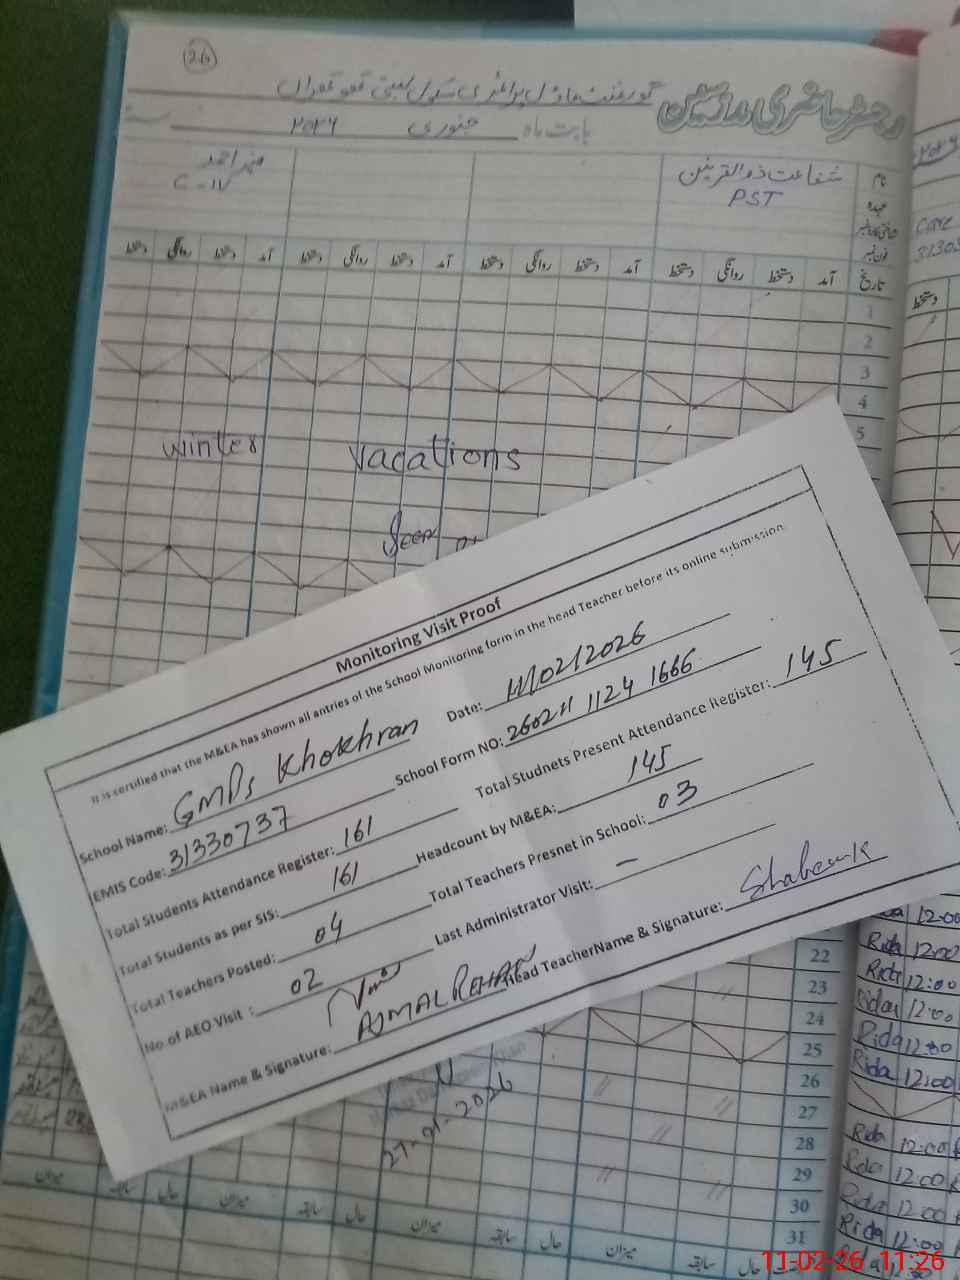 26
رجسٹر حاضری مدرسین گورنمنٹ ماڈل پرائمری سکول بستی
بابت ماہ جنوری ۲۰۲۶ سنہ
نام شفاعت ذوالقرنین منیر احمد
عہدہ PST C-IV
فون نمبر
تاریخ آمد دستخط روانگی دستخط آمد دستخط روانگی دستخط آمد دستخط روانگی دستخط آمد دستخط روانگی دستخط
1
2
3
4
5
winter vacations
Seen
Monitoring Visit Proof
It is certified that the M&EA has shown all antries of the School Monitoring form in the head Teacher before its online submission.
School Name: GMPS Khokhran Date: 11/02/2026
EMIS Code: 31330737 School Form NO: 260211 1124 1666
Total Students Attendance Register: 161 Total Studnets Present Attendance Register: 145
Total Students as per SIS: 161 Headcount by M&EA: 145
Total Teachers Posted: 04 Total Teachers Presnet in School: 03
No of AEO Visit : 02 Last Administrator Visit: –
M&EA Name & Signature: AJMAL REHAN Head TeacherName & Signature:
22
23
24
25
26
27
28
29
30
31
27-01-2026
میزان سابقہ حال میزان سابقہ حال میزان سابقہ حال میزان سابقہ حال
CARE
3130
دستخط
12:00
Rida 12:00
Rida 12:00
Rida 12:00
Rida 12:00
Rida 12:00
Rida 12:00
Rida 12:00
Rida 12:00
Rida 12:00
11-02-26 11:26